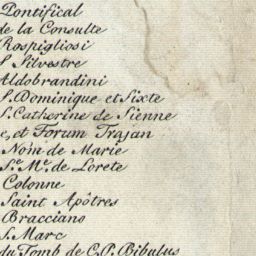 Pontifical
de la Consulte
Rospigliosi
S Silvestre
Aldobrandini
S. Dominique et Sixte
S. Catherine de Sienne
e, et Forum Trajan
Nom de Marie
Sᵉ Mᵉ de Lorete
Colonne
Saint Apôtres
Bracciano
S. Marc
du Tomb de C. P. Bibulus